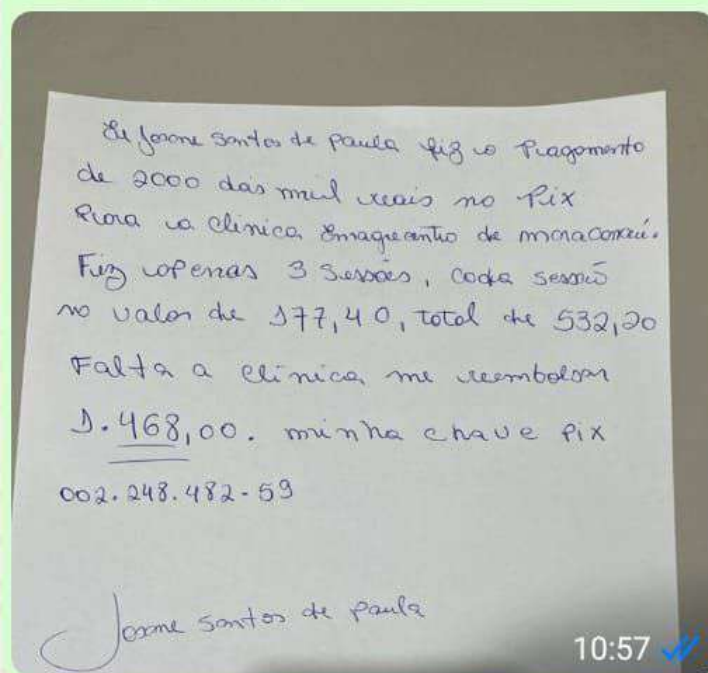 Eu Josone santos de Paula fiz o Pragomento
de 2000 dois mil reais no Pix
Para a clinica Emagrecentro de maracanaú.
Fiz apenas 3 Sessoes, cada sessão
no valor de 177,40, total de 532,20
Falta a clinica me reembolsar
1.468,00. minha chave Pix
002.248.482-59
santos de Paula
10:57